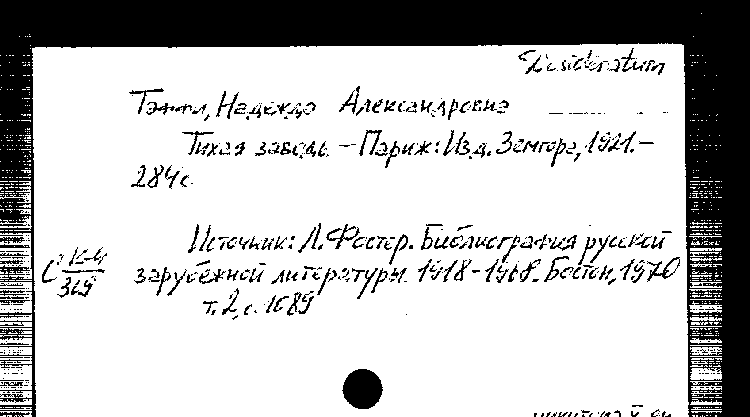 Desideratum
Тэффи, Надежда Александровна
Тихая заводь – Париж: Изд. Земгора, 1921. –
284 с
Источник: Л. Фостер. Библиография русской
зарубежной литературы 1918-1968. Бостон, 1970
т. 2, с. 1089
369